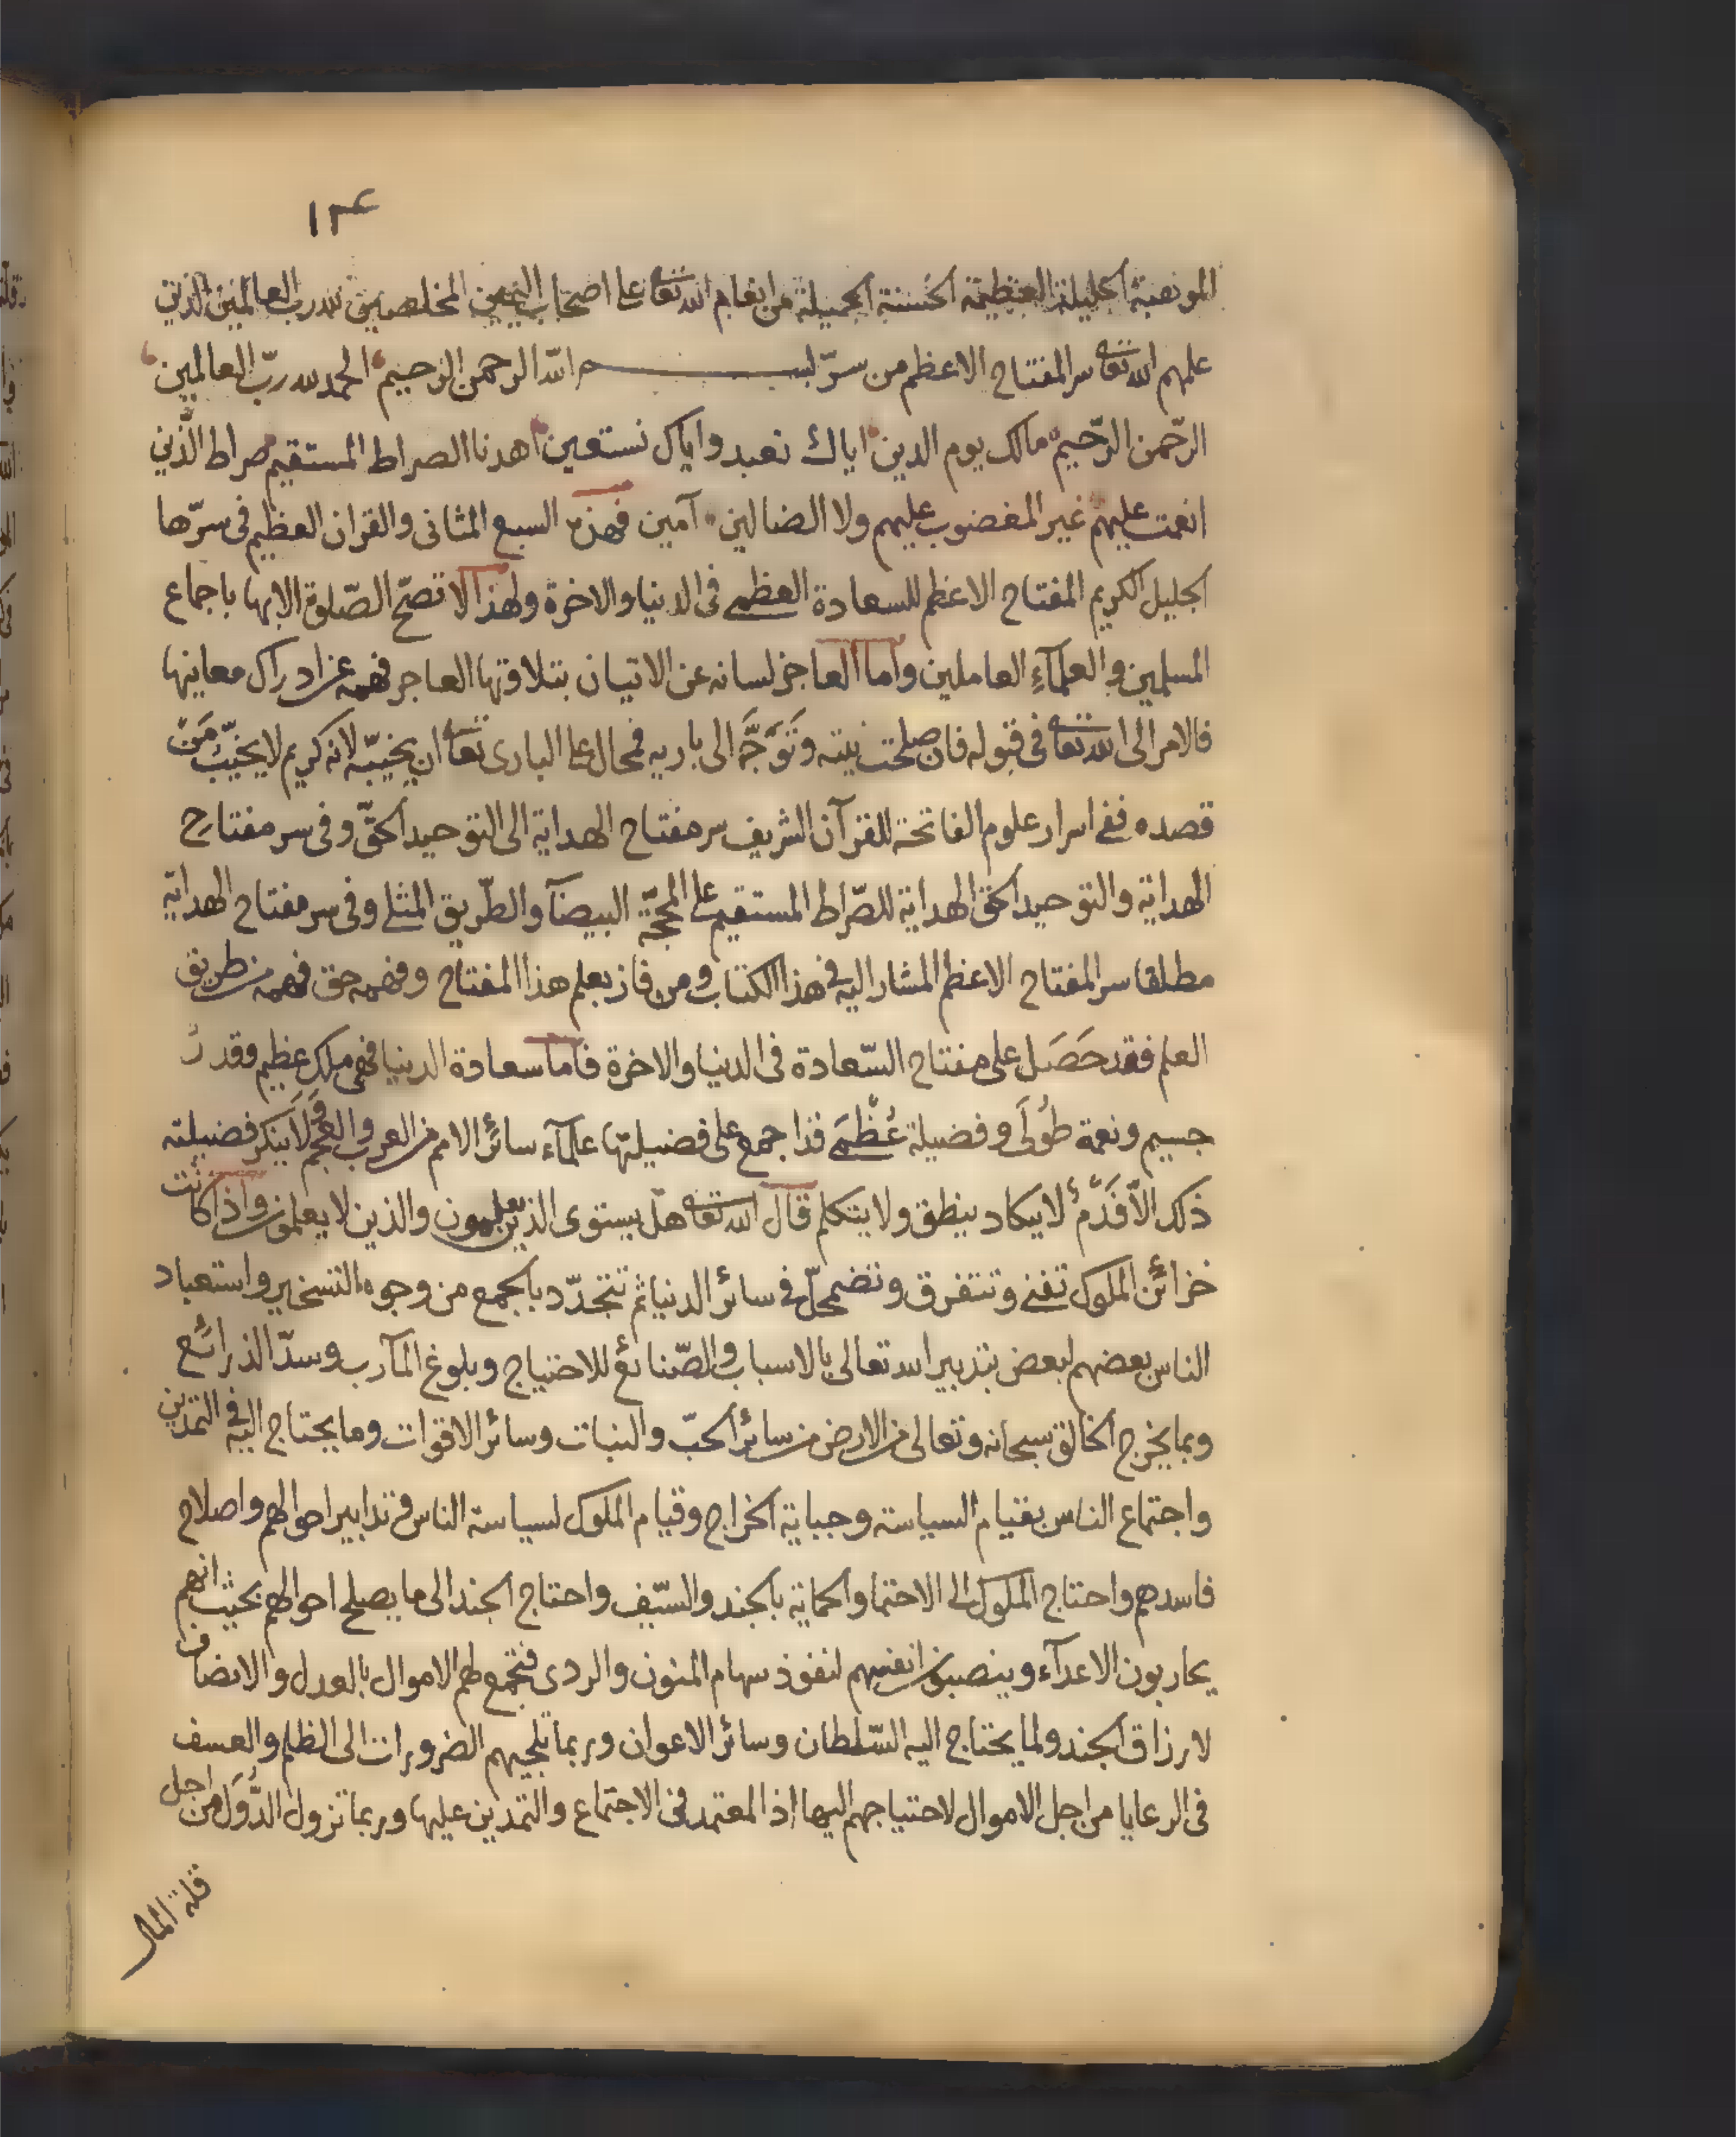 ١٣٤
الموهبة الجليلة العظيمة الحسنة الجميلة من انعام الله تعا على اصحاب اليمين المخلصين لله رب العالمين الذين
علمهم الله تعا سر المفتاح الاعظم من سرّ بسم الله الرحمن الرحيم الحمد لله ربّ العالمين
الرّحمن الرّحيم مالك يوم الدين اياك نعبد واياك نستعين اهدنا الصراط المستقيم صراط الّذين
انعمت عليهم غير المغضوب عليهم ولا الضالين آمين فهذه السبع المثانى والقران العظيم فى سرّها
الجليل الكريم المفتاح الاعظم للسعادة العظمى فى الدنيا والاخرة ولهذا لا تصحّ الصّلوة الا بها باجماع
المسلمين والعلمآءِ العاملين واما العاجز لسانه عن الاتيان بتلاوتها العاجز فهمه عن ادراك معانيها
فالامر الى الله تعا فى قبوله فان صلحت نيته وَتَوَجَّه الى باريه فمحال على البارى تعا ان يخيبّه لانه كريم لا يخيّب مَنْ
قصده ففى اسرار علوم الفاتحة للقرآن الشريف سر مفتاح الهداية الى التوحيد الحقّ وفى سر مفتاح
الهداية والتوحيد الحق الهداية للصّراط المستقيم على المحجّة البيضآ والطّريق المثلى وفى سر مفتاح الهداية
مطلقا سر المفتاح الاعظم المشار اليه فى هذا الكتاب ومن فاز بعلم هذا المفتاح وفهمه حق فهمه من طريق
العلم فقد حَصَل على مفتاح السّعادة فى الدنيا والاخرة فاما سعادة الدنيا فهى ملك عظيم وقدرُ
جسيم ونعمة طُولَى وفضيلة عُظْمَى قد اجمع على فضيلتها علمآء سائر الامم من العرب والعجم وَلَا ينكر فضيلته
ذلك الّا فَدْمٌ لا يكاد ينطق ولا يتكلم قال الله تعا هل يستوى الذين يعلمون والذين لا يعلمون واذا كانت
خزائن الملوك تفنى وتتفرق وتضمحلّ فى سائر الدنيا ثم تتجدّد بالجمع من وجوه التسخير واستعباد
الناس بعضهم لبعض بتدبير الله تعالى بالاسباب والصّنائع للاحتياج وبلوغ المآرب وسدّ الذرائع
وبما يخرج الخالق سبحانه وتعالى من الارض من سائر الحبّ والنبات وسائر الاقوات وما يحتاج اليه فى التمدين
واجتماع الناس بقيام السياسة وجباية الخراج وقيام الملوك لسياسة الناس وتدابير احوالهم واصلاح
فاسدهم واحتاج الملوك الى الاحتما والحماية بالجند والسّيف واحتاج الجند الى ما يصلح احوالهم بحيث انهم
يحاربون الاعدآء وينصبون انفسهم لنفوذ سهام المنون والردى فتجمع لهم الاموال بالعدل والانصاف
لارزاق الجند ولما يحتاج اليه السّلطان وسائر الاعوان وربما تلجيهم الضرورات الى الظلم والعسف
فى الرعايا من اجل الاموال لاحتياجهم اليها اذ المعتمد فى الاجتماع والتمدين عليها وربما تزول الدُّوَل من اجل
قلة المال